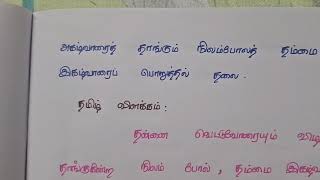 அகழ்வாரைத் தாங்கும் நிலம்போலத் தம்மை
இகழ்வாரைப் பொறுத்தல் தலை.
தமிழ் விளக்கம் :
தன்னை வெட்டுவோரையும்
தாங்குகின்ற நிலம் போல், தம்மை